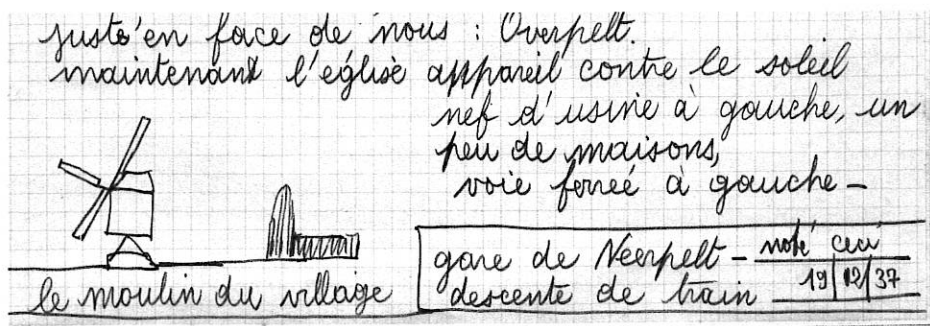 juste en face de nous : Overpelt.
maintenant l'eglise appareil contre le soleil
nef d'usine à gauche, un
peu de maisons,
voie ferreé à gauche –
le moulin du village
gare de Neerpelt – noté ceci
descente de train 19/12/37